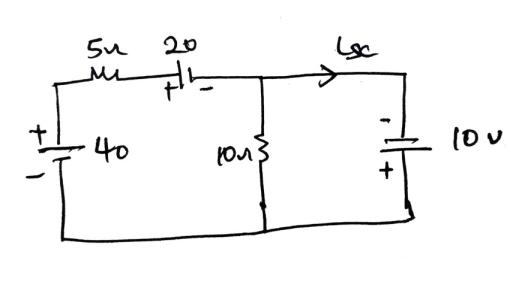 5Ω 20 Isc
+ -
+ 40 -
10Ω
- 10 V +